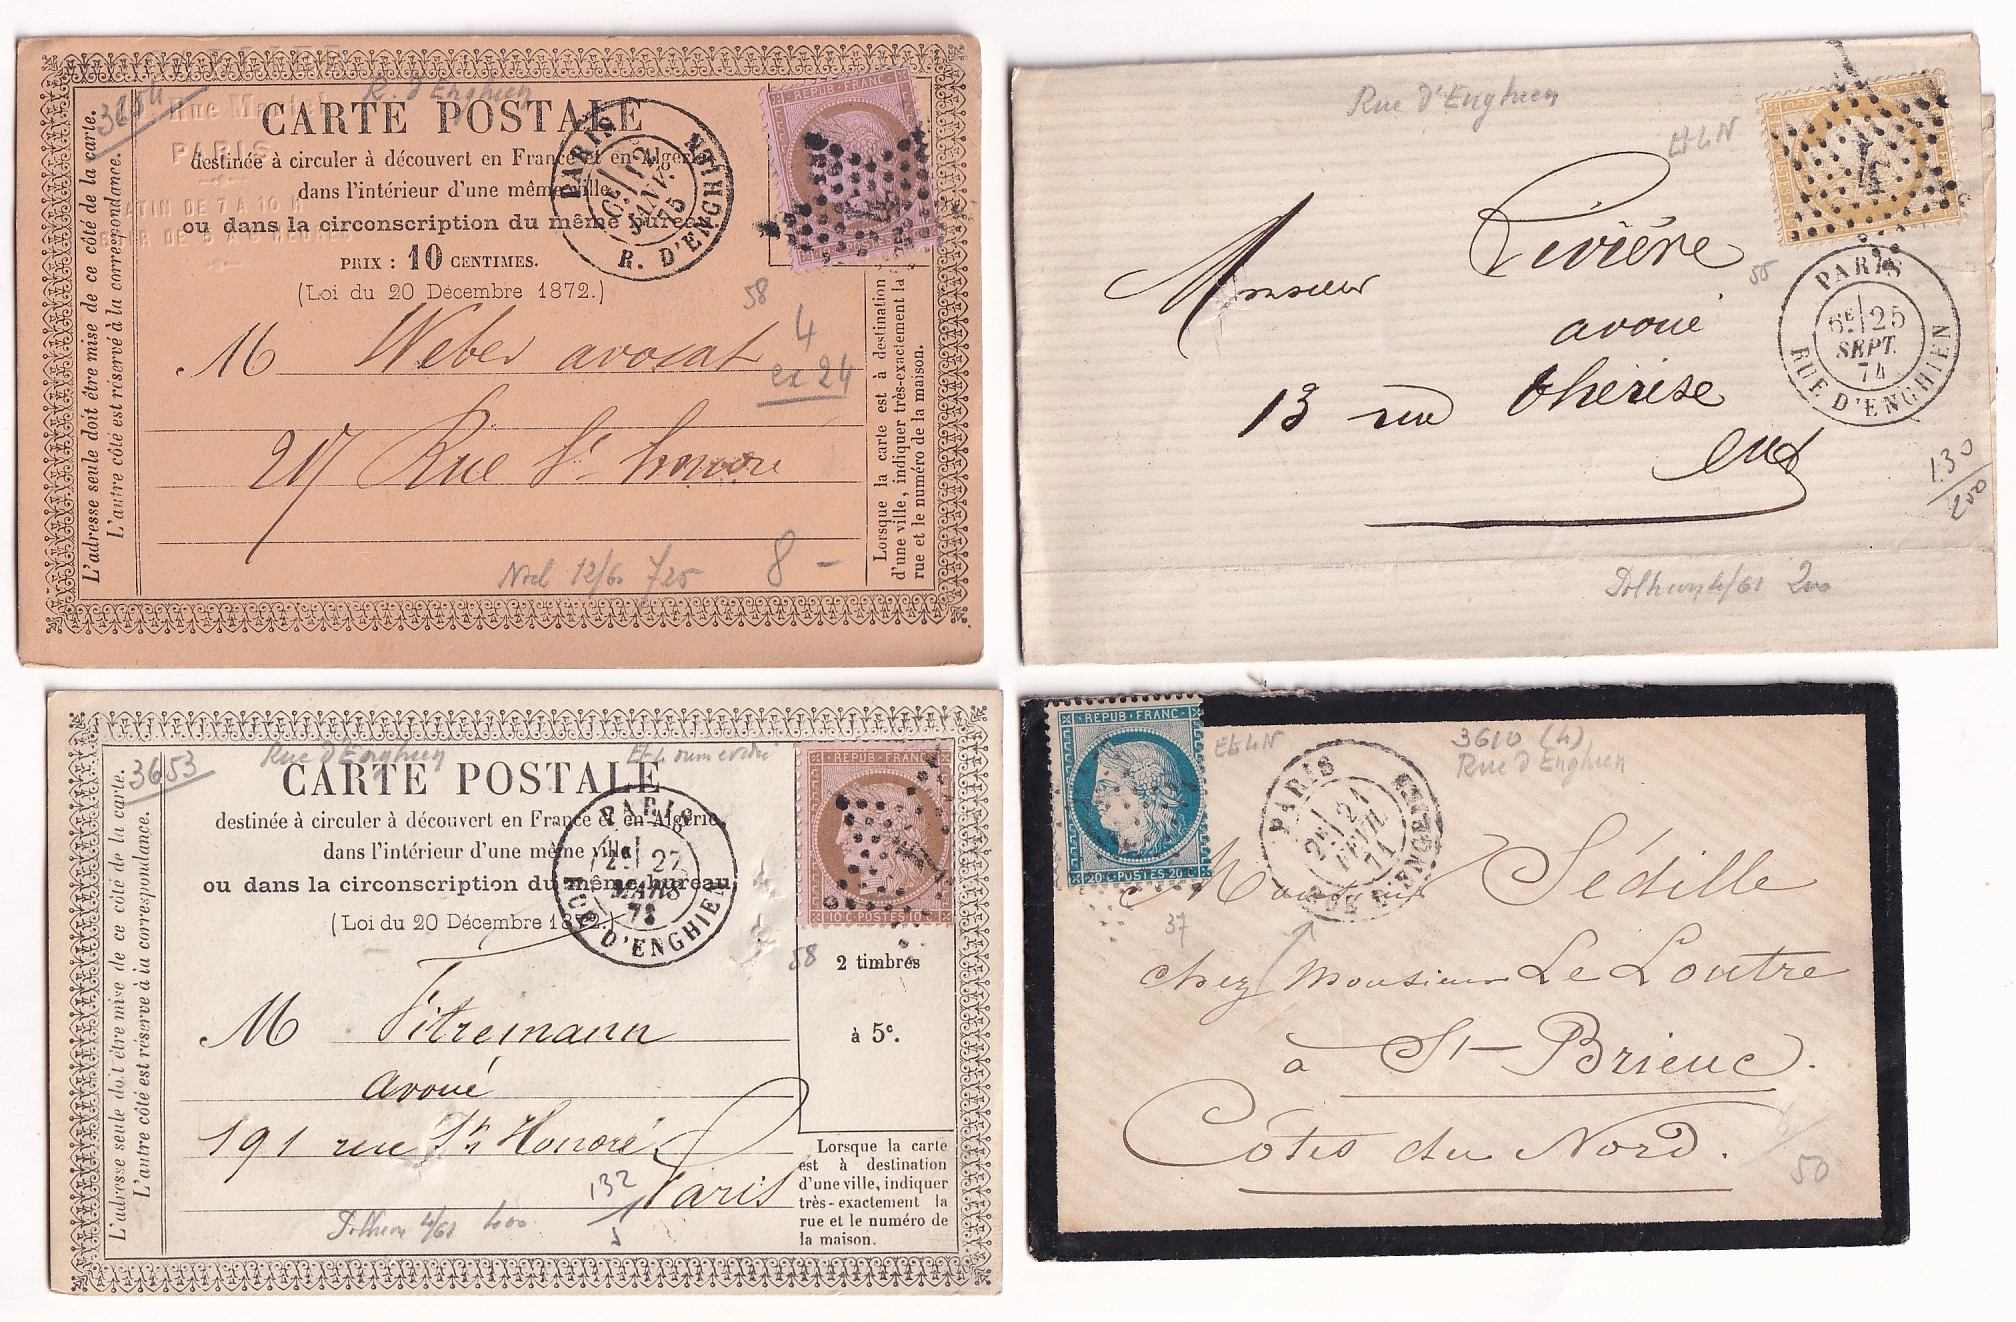 3654
R. d'Enghien
Rue Martel
PARIS
MATIN DE 7 A 10 H
DE 5 A 6 HEURES
CARTE POSTALE
destinée à circuler à découvert en France et en Algérie
dans l'intérieur d'une même ville
ou dans la circonscription du même bureau
PRIX : 10 CENTIMES.
(Loi du 20 Décembre 1872.)
L'adresse seule doit être mise de ce côté de la carte.
L'autre côté est réservé à la correspondance.
PARIS
6E 12
JANV.
75
R. D'ENGHIEN
REPUB FRANC
POSTES
4
58
4
ex 24
M Weber avocat
217 Rue St honoré
12/60 725
8 -
Lorsque la carte est à destination
d'une ville, indiquer très-exactement la
rue et le numéro de la maison.
Rue d'Enghien
Et 4 N
4
55
PARIS
6E 25
SEPT.
74
RUE D'ENGHIEN
Monsieur Rivière
avoué
13 rue thérèse
130
200
4/61 200
3653
Rue d'Enghien
CARTE POSTALE
destinée à circuler à découvert en France et en Algérie,
dans l'intérieur d'une même ville
ou dans la circonscription du même bureau,
(Loi du 20 Décembre 1872.)
L'adresse seule doit être mise de ce côté de la carte.
L'autre côté est réservé à la correspondance.
PARIS
27
MARS
RUE D'ENGHIEN
REPUB FRANC
10 C POSTES 10 C
58
2 timbres
à 5c.
M Fitremann
avoué
191 rue St Honoré
Paris
132
4/61 400
Lorsque la carte
est à destination
d'une ville, indiquer
très-exactement la
rue et le numéro de
la maison.
REPUB FRANC
20 C POSTES 20 C
Et 4 N
3610 (4)
Rue d'Enghien
PARIS
2E 21
FEVR.
71
RUE D'ENGHIEN
37
Monsieur Sédille
chez Monsieur Le Loutre
à St-Brieuc.
Côtes du Nord.
50